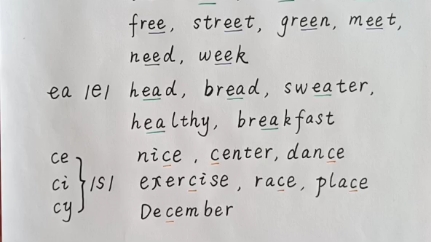 free, street, green, meet,
need, week
ea /e/ head, bread, sweater,
healthy, breakfast
ce nice, center, dance
ci /s/ exercise, race, place
cy December